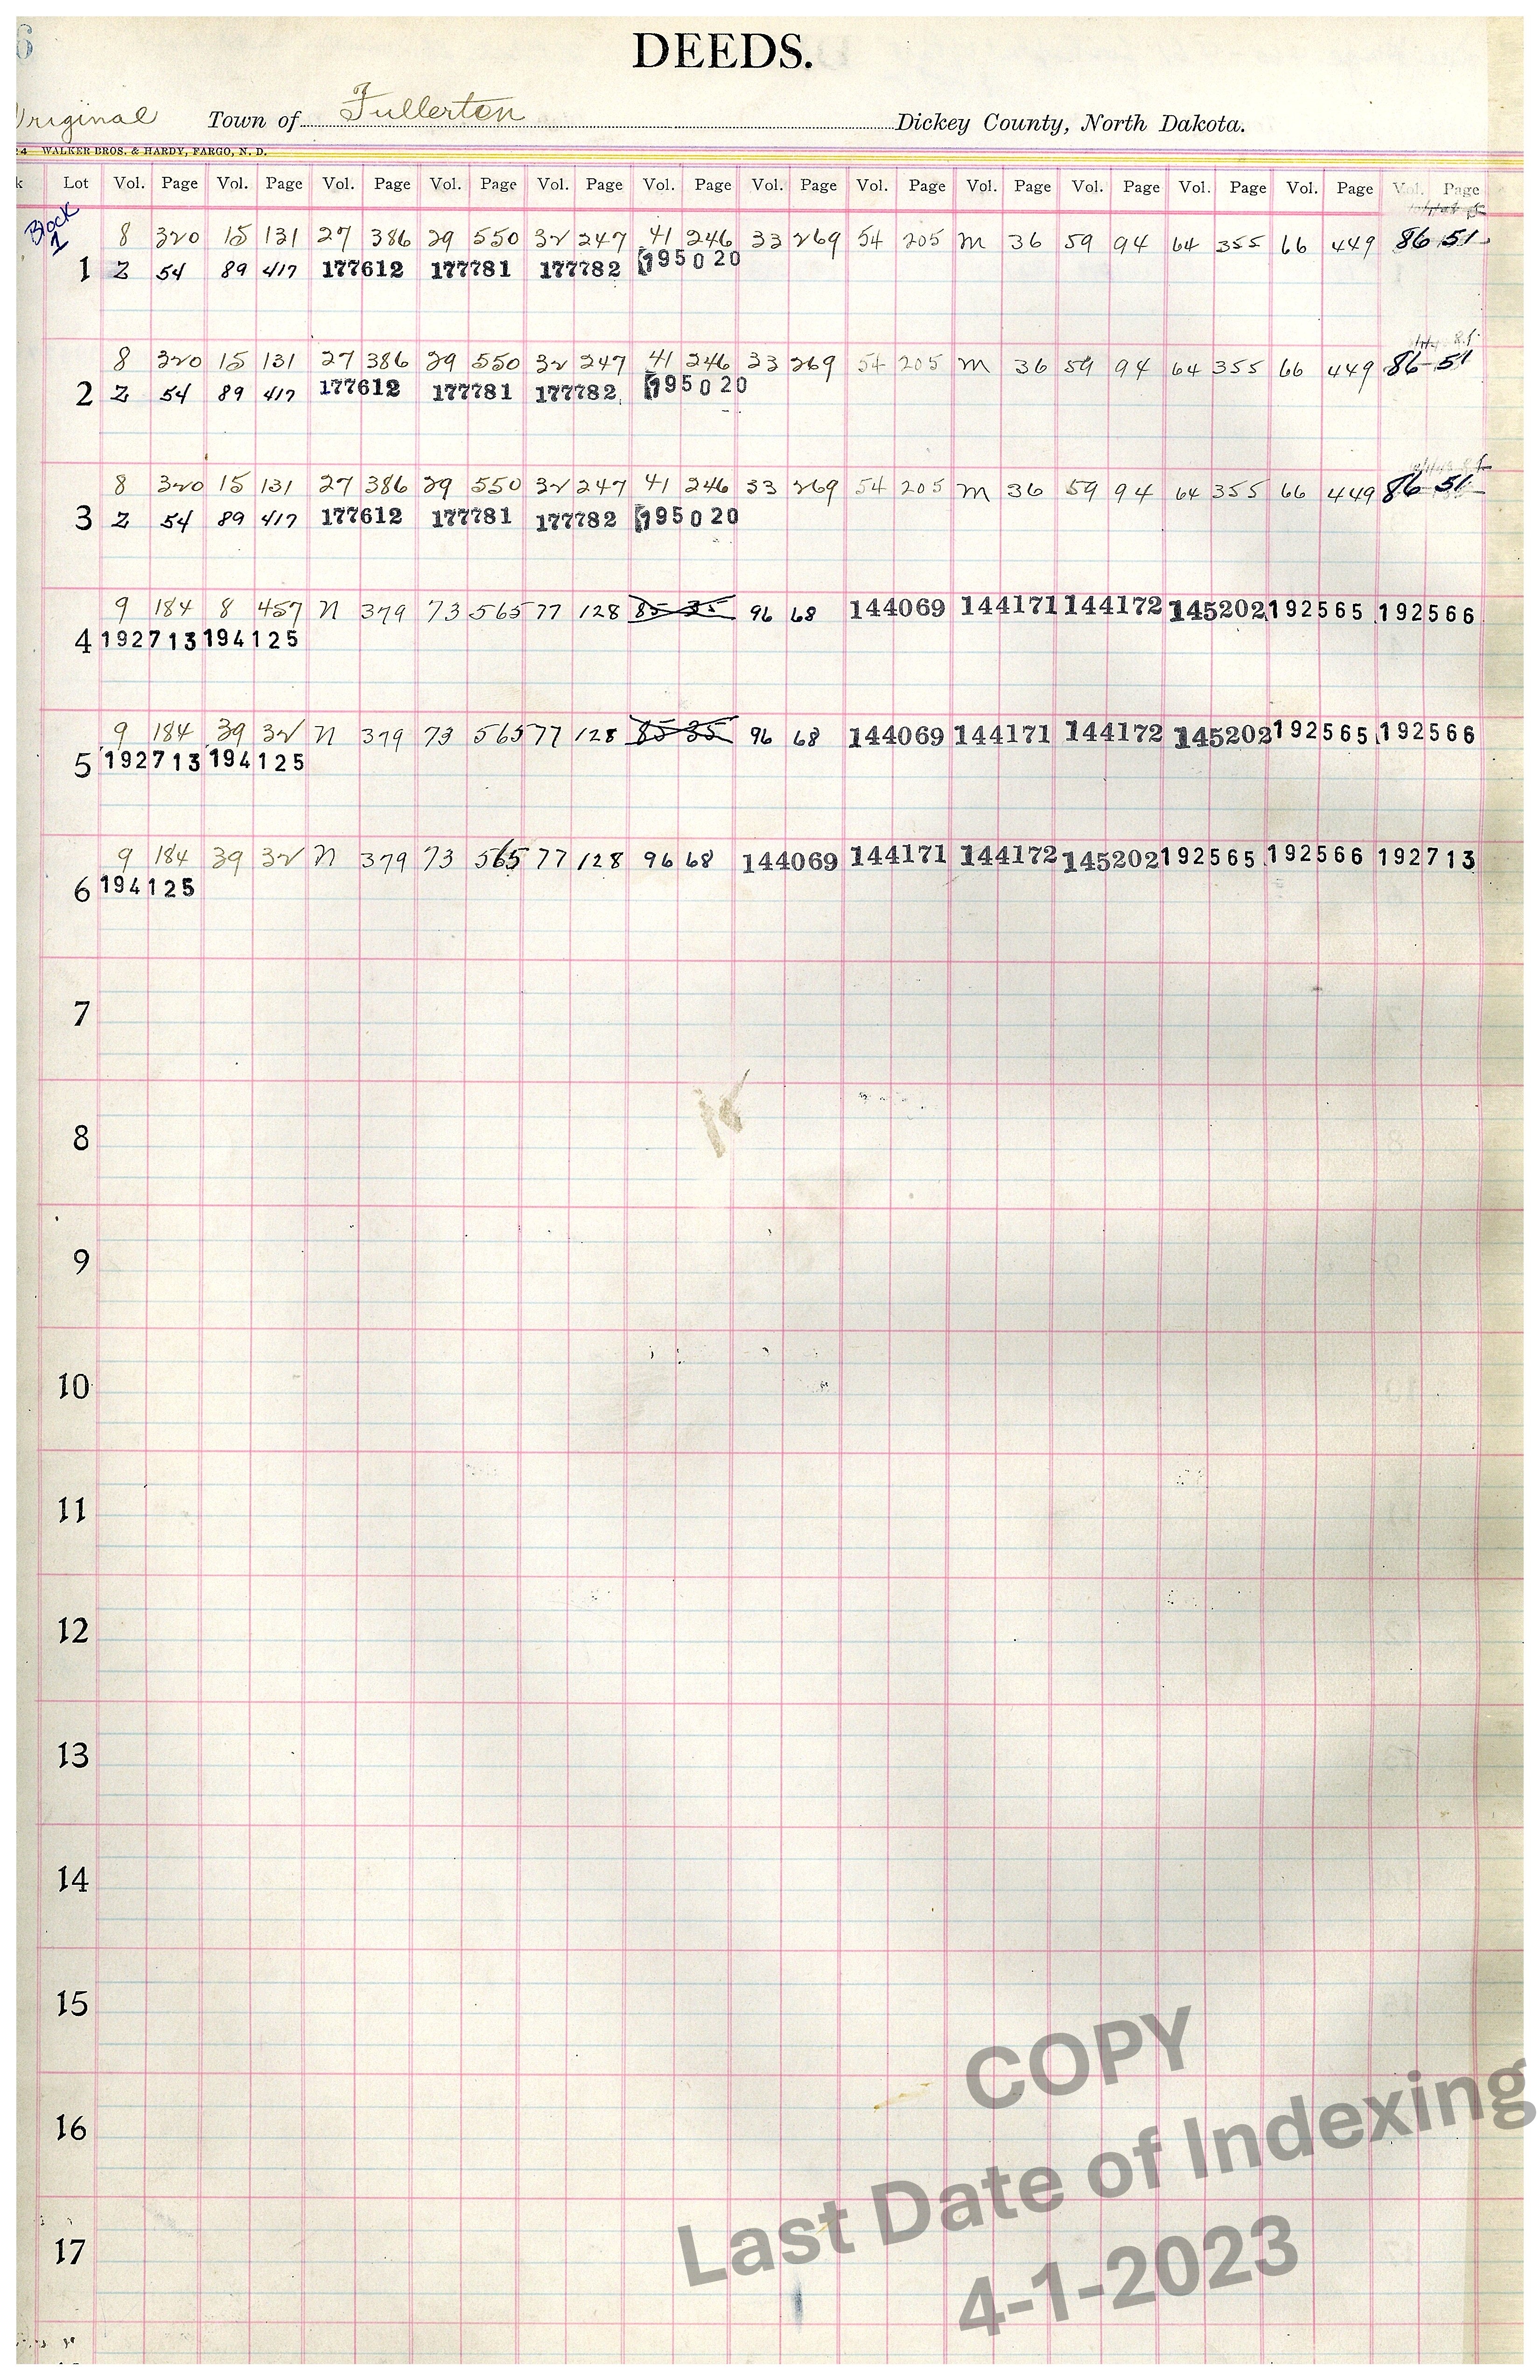 6
DEEDS.
Original Town of Fullerton Dickey County, North Dakota.
24 WALKER BROS. & HARDY, FARGO, N. D.
k Lot Vol. Page Vol. Page Vol. Page Vol. Page Vol. Page Vol. Page Vol. Page Vol. Page Vol. Page Vol. Page Vol. Page Vol. Page Vol. Page
Block 1
8 320 15 131 27 386 29 550 32 247 41 246 33 269 54 205 M 36 59 94 64 355 66 449 86 51
1 Z 54 89 417 177612 177781 177782 195020
8 320 15 131 27 386 29 550 32 247 41 246 33 269 54 205 M 36 59 94 64 355 66 449 86 51
2 Z 54 89 417 177612 177781 177782 195020
8 320 15 131 27 386 29 550 32 247 41 246 33 269 54 205 M 36 59 94 64 355 66 449 86 51
3 Z 54 89 417 177612 177781 177782 195020
9 184 8 457 N 379 73 565 77 128 85 35 96 68 144069 144171 144172 145202 192565 192566
4 192713 194125
9 184 39 32 N 379 73 565 77 128 85 35 96 68 144069 144171 144172 145202 192565 192566
5 192713 194125
9 184 39 32 N 379 73 565 77 128 96 68 144069 144171 144172 145202 192565 192566 192713
6 194125
7
8
9
10
11
12
13
14
15
16
17
COPY
Last Date of Indexing
4-1-2023